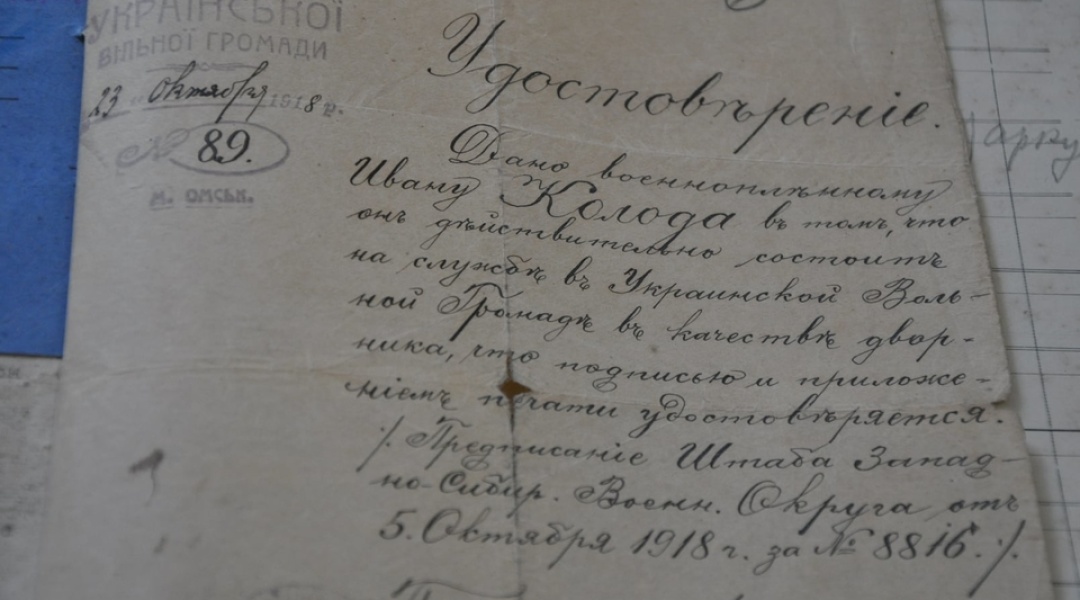 УКРАЇНСЬКОЇ
ВІЛЬНОЇ ГРОМАДИ
23 октября 1918 г.
№ 89.
м. ОМСЬК.
Удостовѣреніе.
Дано военноплѣнному
Ивану Колода въ томъ, что
онъ дѣйствительно состоитъ
на службѣ въ Украинской Воль-
ной Громадѣ въ качествѣ двор-
ника, что подписью и приложе-
ніемъ печати удостовѣряется.
/. Предписаніе Штаба Запад-
но-Сибир. Военн. Округа отъ
5. Октября 1918 г. за № 8816. ./.